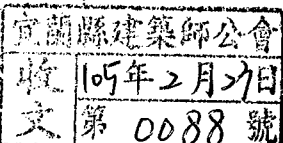 宜蘭縣建築師公會
收文
105年2月27日
第 0088 號